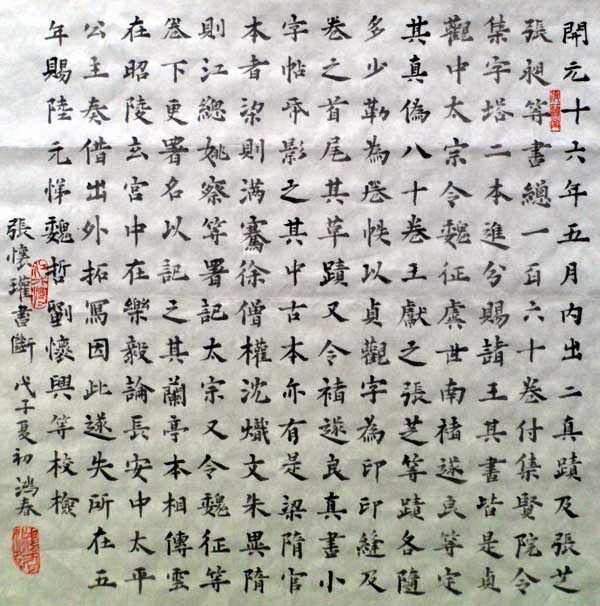 開元十六年五月内出二真蹟及張芝
張昶等書總一百六十卷付集賢院令
集字塔二本進分賜諸王其書皆是貞
觀中太宗令魏征虞世南褚遂良等定
其真偽八十卷王獻之張芝等蹟各隨
多少勒為卷帙以貞觀字為印印縫及
卷之首尾其草蹟又令褚遂良真書小
字帖乎影之其中古本亦有是梁隋官
本者梁則滿騫徐僧權沈熾文朱異隋
則江總姚察等署記太宗又令魏征等
卷下更署名以記之其蘭亭本相傳雲
在昭陵玄宮中在樂毅論長安中太平
公主奏借出外拓寫因此遂失所在五
年賜陸元悌魏哲劉懷興等校檢
張懷瓘書斷 戊子夏初鴻春